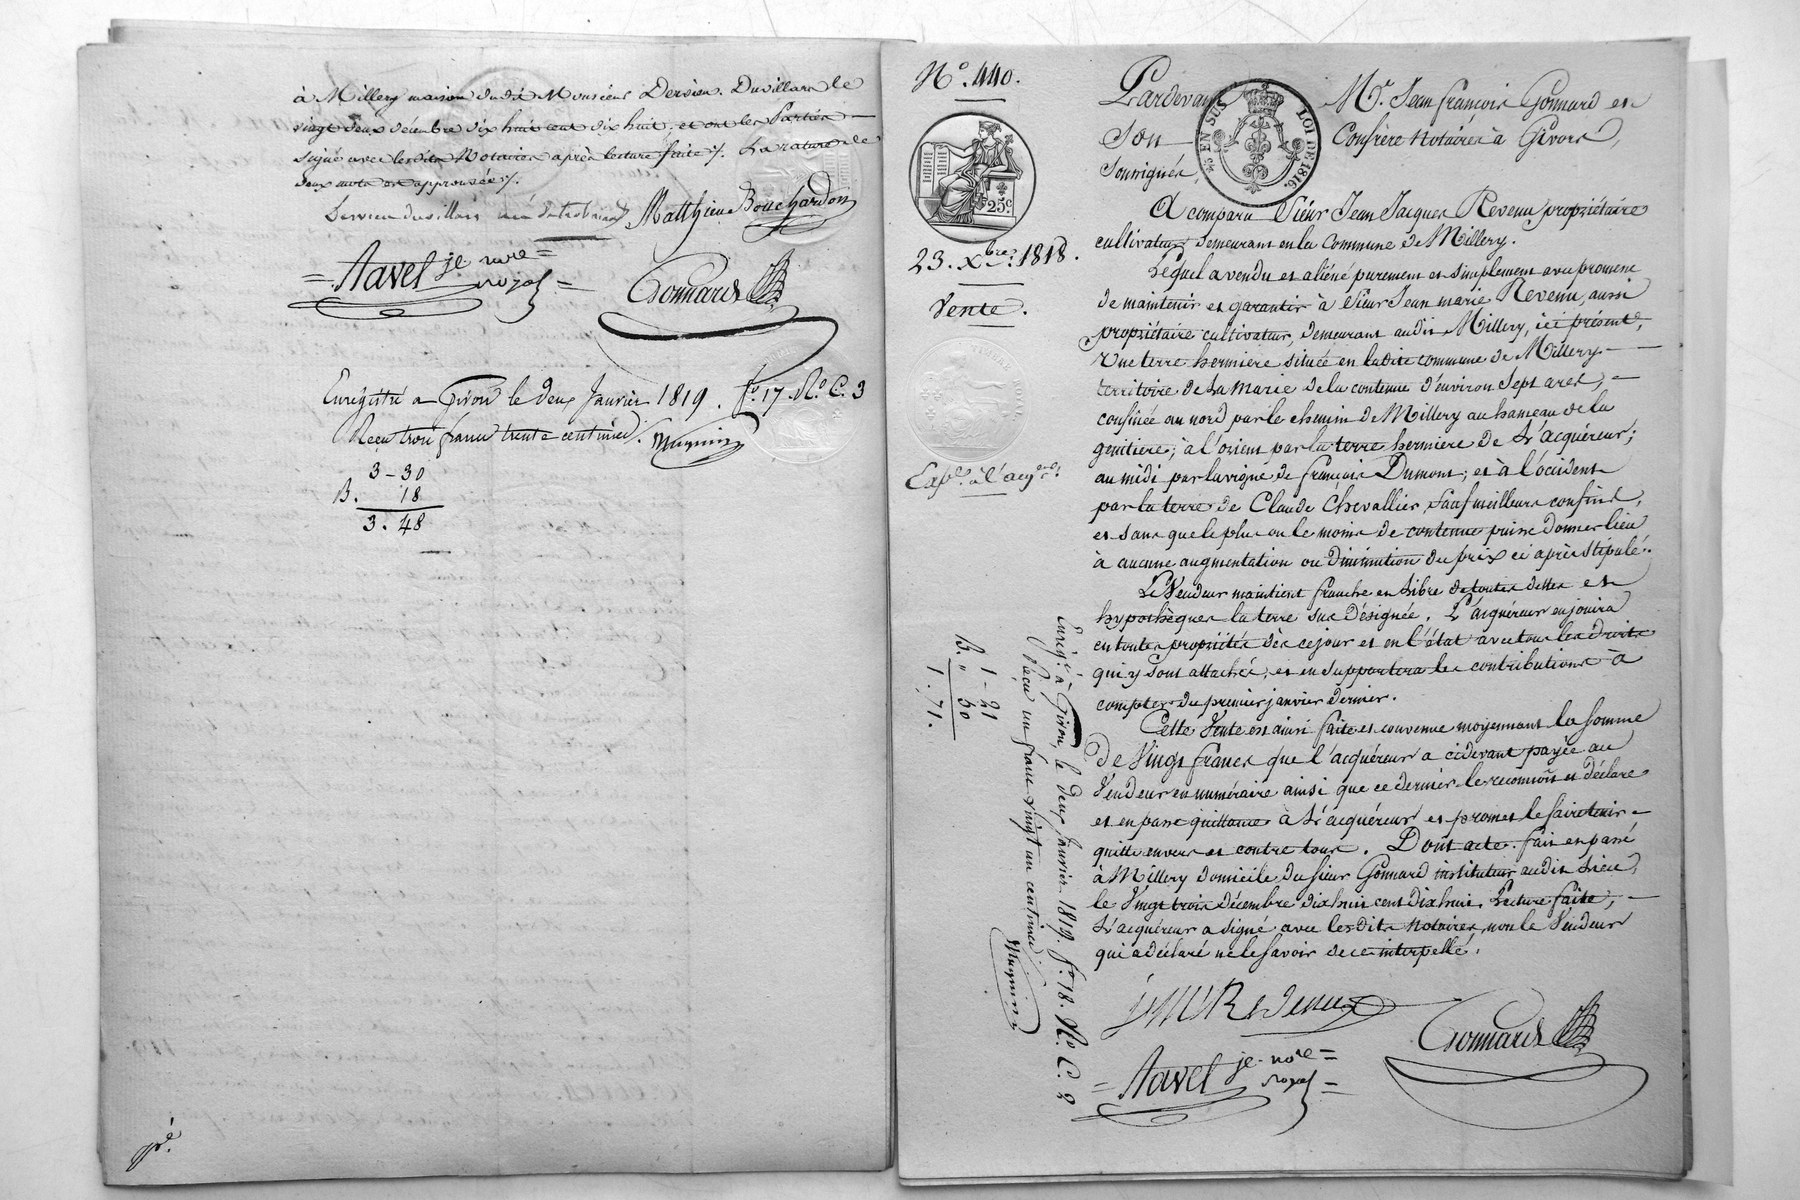 à Millery maison dudit Monsieur Dervieu Duvillars le
vingt deux décembre dix huit cent dix huit, et ont les Parties
signé avec lesdits Notaires après lecture faite ./. La rature de
deux mots est approuvée ./.
Dervieu duvillars
Matthieu Bouchardon
= Navel je. nore =
royal =
Gonnard
Enregistré à Givors le deux Janvier 1819. f.o 17 R.o C. 3
Reçu trois francs trente centimes. Magnin
3 - 30
B. 18
3. 48
N.o 440.
25c
23. Xbre 1818.
Vente.
Exp.é à l'acq.r
Enreg.é à Givors, le deux Janvier 1819. f.o 18. R.o C. 2
Reçu un franc vingt un centimes
Magnin
1 - 21
B. " 50
1. 71.
EN SUS
LOI DE 1816.
Pardevant M.r Jean françois Gonnard et
Son Confrère Notaires à Givors,
Soussignés,
A comparu Sieur Jean Jacques Revenu propriétaire
cultivateur demeurant en la Commune de Millery.
Lequel a vendu et aliéné purement et simplement avec promesse
de maintenir et garantir à Sieur Jean marie Revenu, aussi
propriétaire cultivateur, demeurant audit Millery, ici présent,
Une terre hermiere située en ladite commune de Millery
territoire de La Marie de la contenue d'environ Sept ares,
confinée au nord par le chemin de Millery au hameau de la
gentiere; à l'orient par la terre hermiere de L'acquéreur;
au midi par la vigne de françois Dumont; et à l'occident
par la terre de Claude Chevallier, Sauf meilleurs confins,
et sans que le plus ou le moins de contenue puisse donner lieu
à aucune augmentation ou diminution du prix ci après stipulé.
Le Vendeur maintient franche et Libre de toutes dettes et
hypothèques la terre sus désignée. L'acquéreur en jouira
en toute propriété dès ce jour et en l'état avec tous les droits
qui y sont attachés, et en supportera les contributions à
compter du premier janvier dernier.
Cette Vente est ainsi faite et convenue moyennant la somme
De Vingt francs que l'acquéreur a cidevant payée au
Vendeur en numéraire ainsi que ce dernier le reconnoit et déclare
et en passe quittance à L'acquéreur et promet le faire tenir
quitte envers et contre tous. Dont acte. fait et passé
à Millery domicile du sieur Gonnard instituteur audit Lieu,
le Vingt trois décembre dix huit cent Dix huit. Lecture faite,
L'acquéreur a signé avec lesdits Notaires, non le Vendeur
qui a déclaré ne le savoir de ce interpellé.
JM Revenu
Gonnard
= Navel je. nore =
royal =